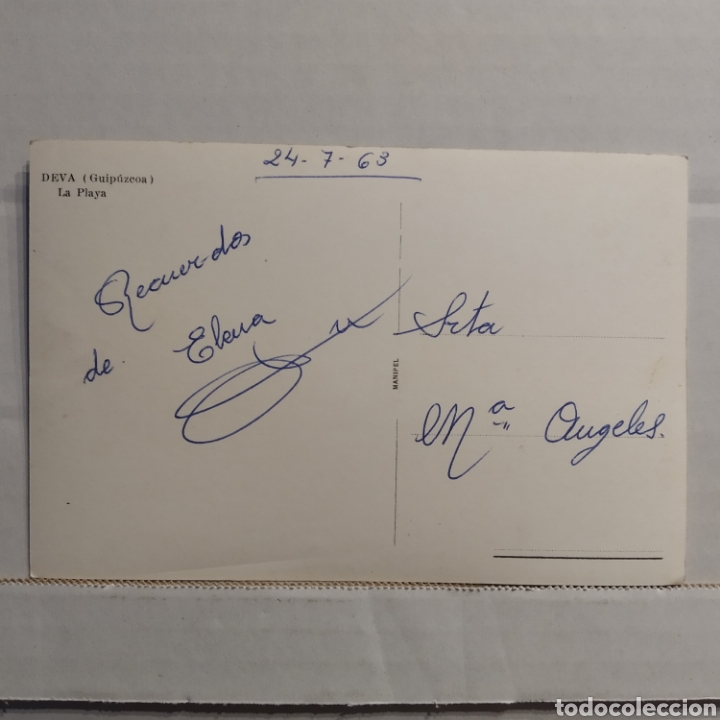 24-7-63
DEVA (Guipúzcoa)
La Playa
Recuerdos
de Elena
MANIPEL
Srta
Mª Angeles.
todocoleccion